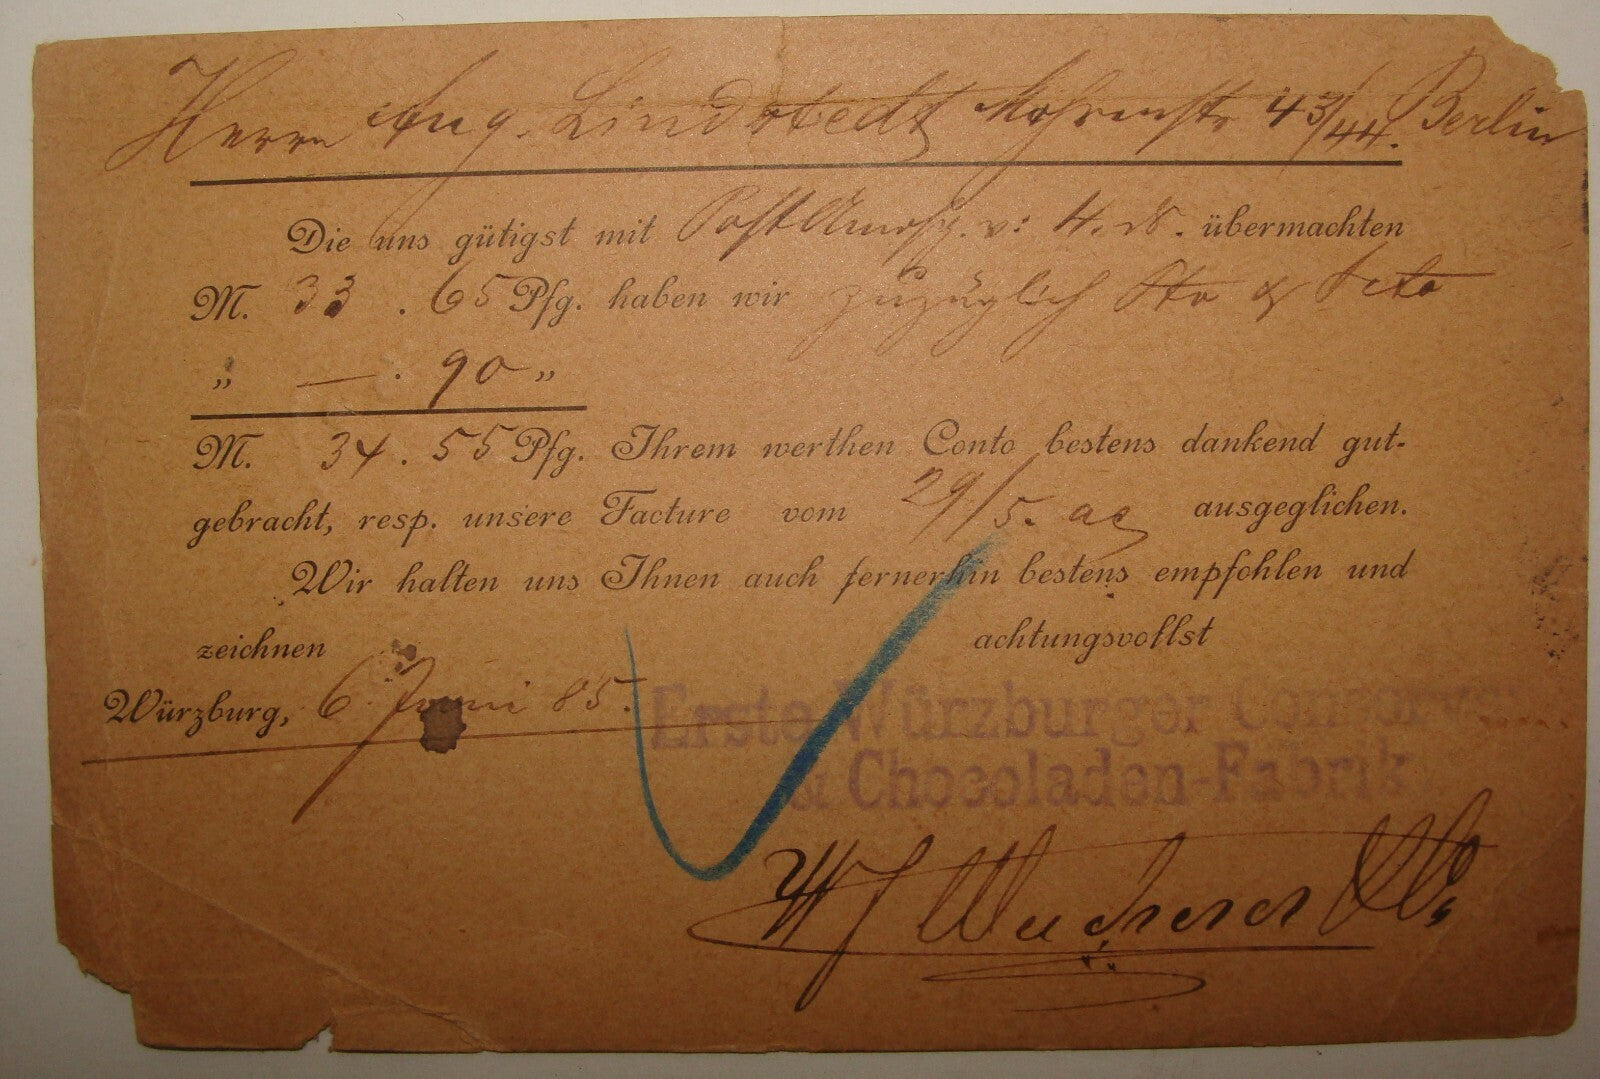 Herrn Aug. Lindstedt Mohrenstr 43/44. Berlin
Die uns gütigst mit Postanwsg. v: 4. ds. übermachten
M. 33 . 65 Pfg. haben wir zuzüglich Sto & Scto
„ — . 90 „
M. 34 . 55 Pfg. Ihrem werthen Conto bestens dankend gut-
gebracht, resp. unsere Facture vom 29/5. ac ausgeglichen.
Wir halten uns Ihnen auch fernerhin bestens empfohlen und
zeichnen achtungsvollst
Würzburg, 6 Juni 85.
Erste Würzburger Conserven
& Chocoladen-Fabrik
Wucherer